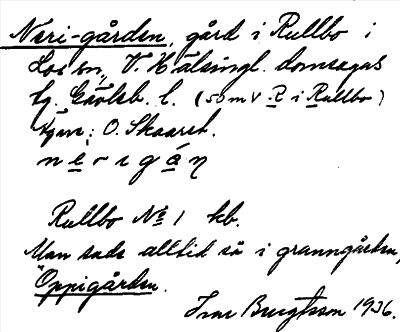 Neri-gården, gård i Rullbo i
Los sn, V. Hälsingl. domsagas
tg. Gävleb. l. (50 m V R i Rullbo)
O. Skaaret.
nerigáŋ
Rullbo No 1 kb.
Man sade alltid så i granngården,
Öppigården.
Ivar Bengtsson 1936.